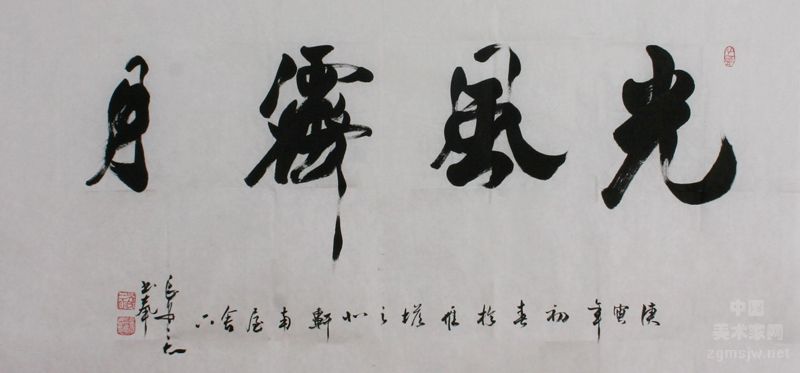 光风霁月
庚寅年初春于雁塔之北轩南屋舍下
中国
美术家网
zgmsjw.net